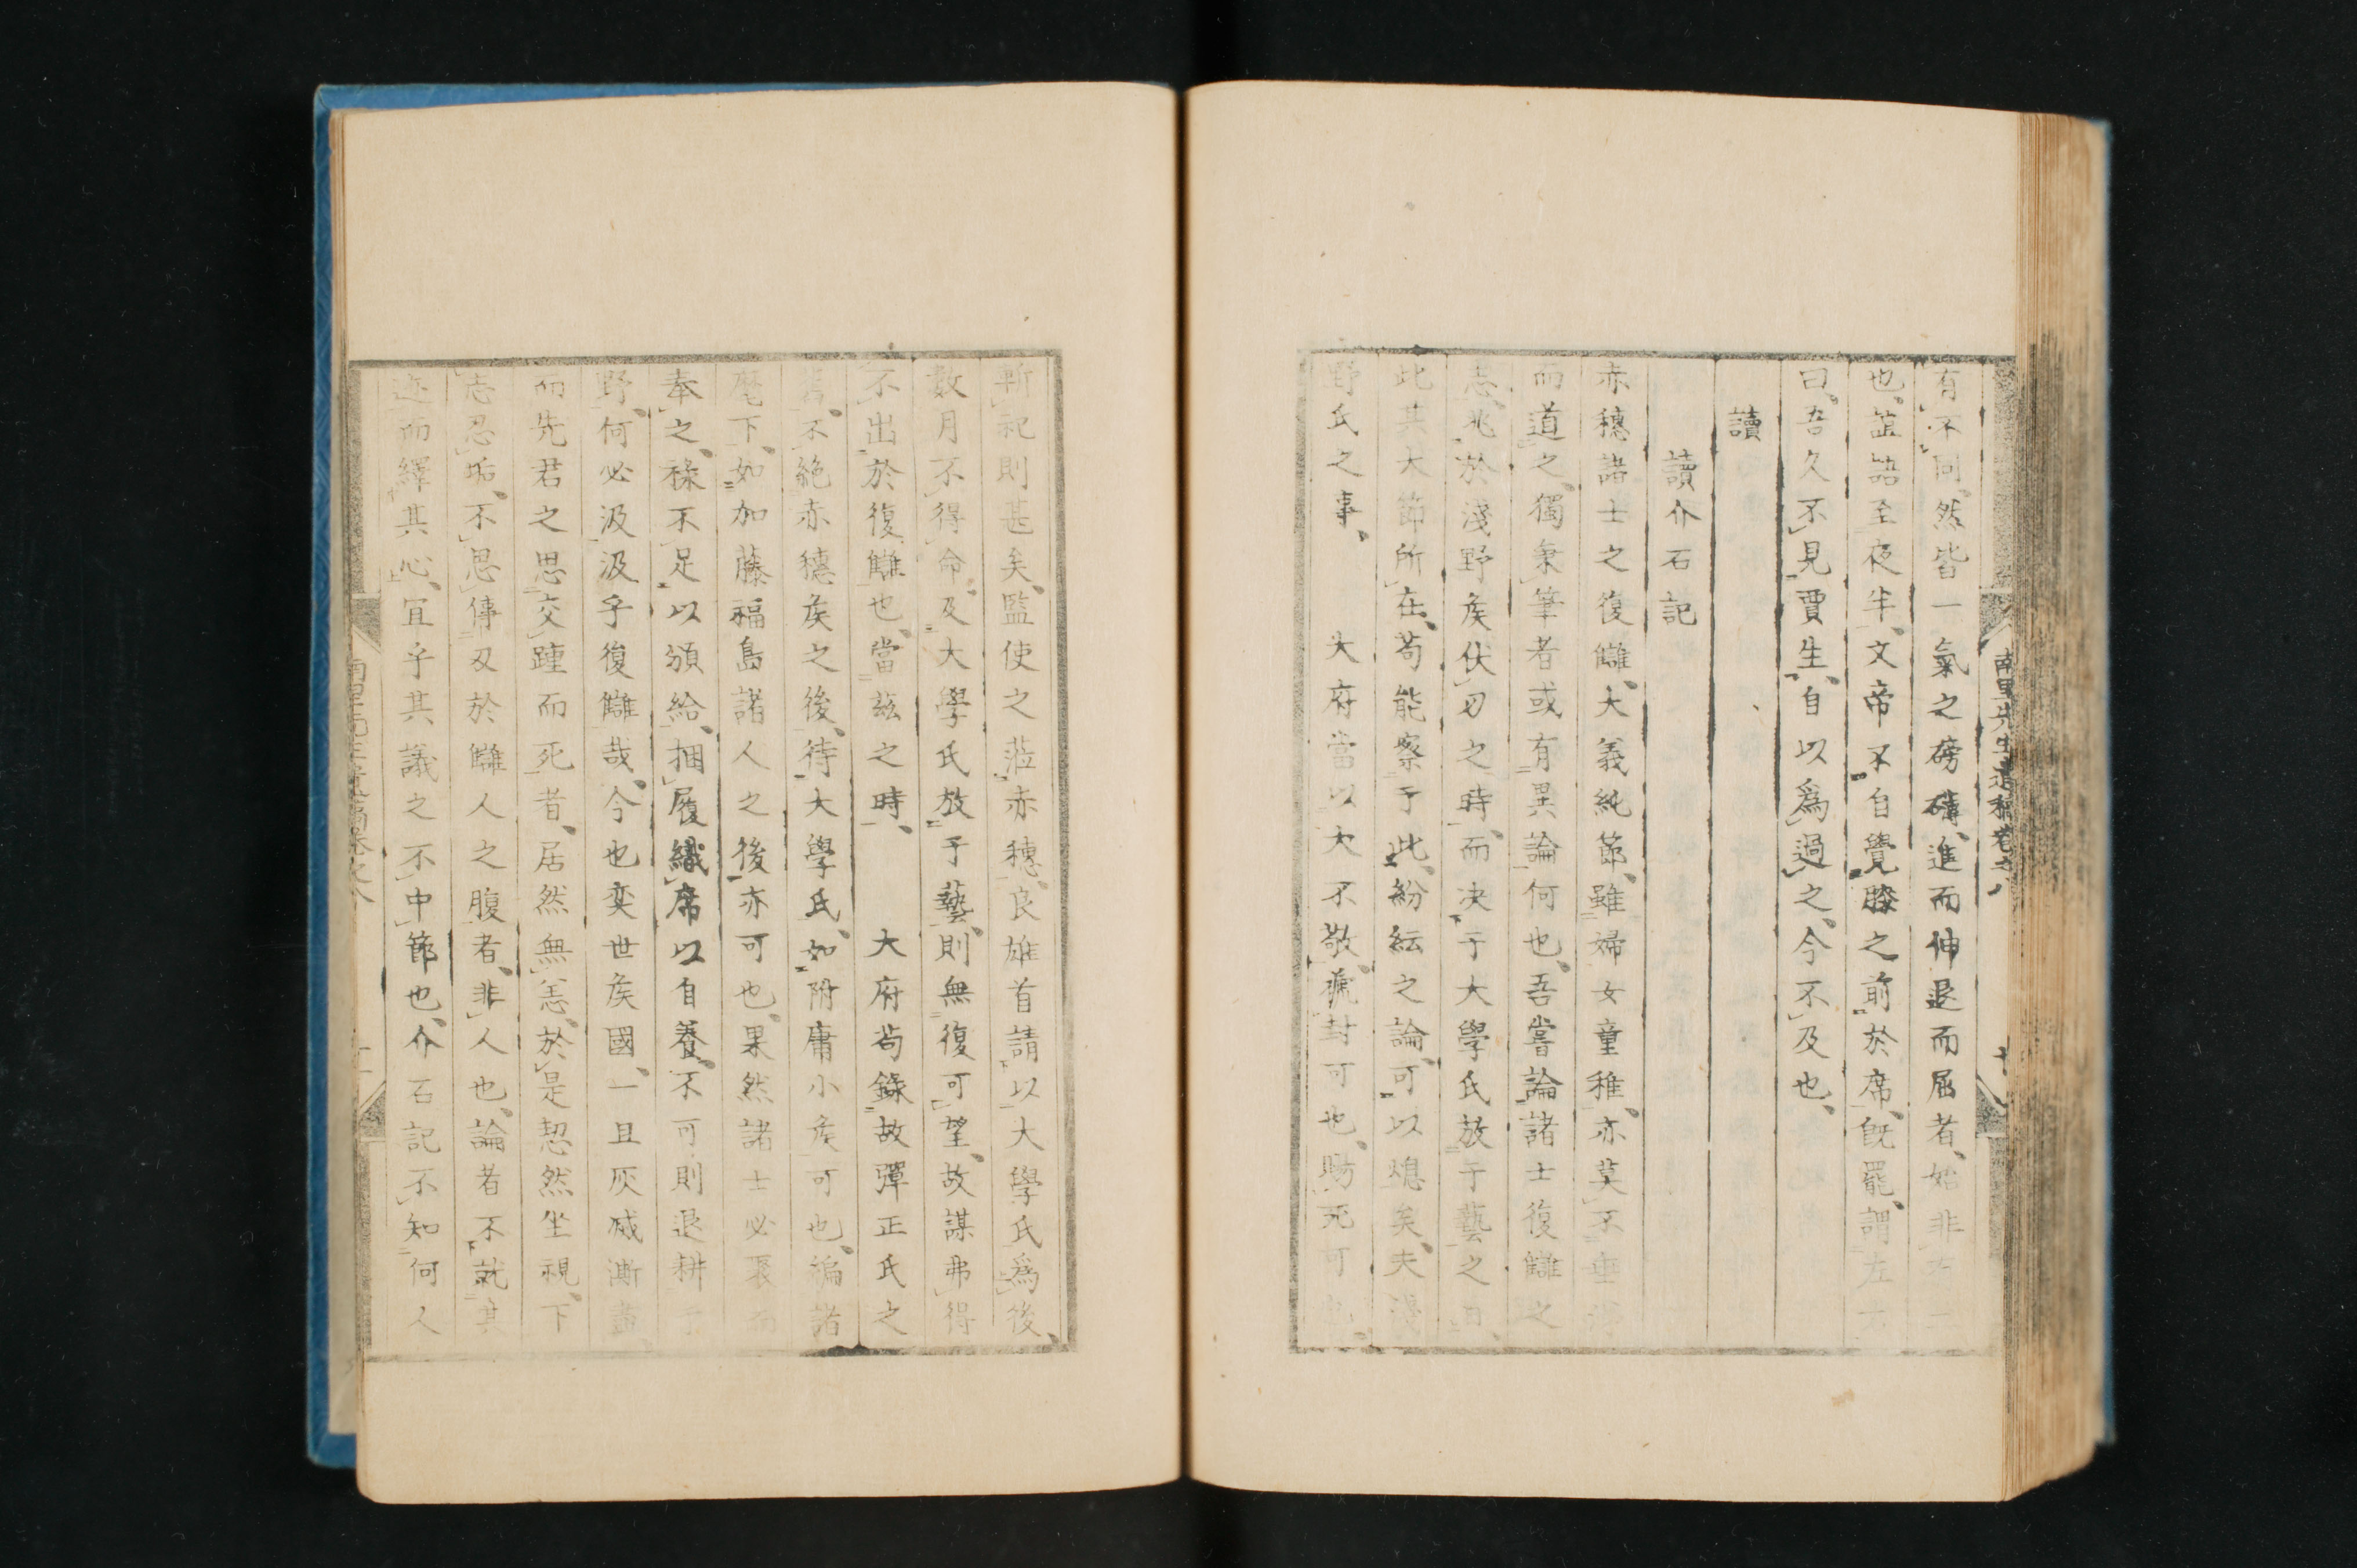 南里先生遺稿卷之八 十
有不同、然皆一氣之磅礴、進而伸退而屈者、始非有二
也、語至夜半、文帝不自覺膝之前於席、既罷、謂左右
曰、吾久不見賈生、自以爲過之、今不及也、
讀
讀介石記
赤穗諸士之復讎、大義純節、雖婦女童稚、亦莫不垂
而道之、獨秉筆者或有異論何也、吾嘗論諸士復讎之
志、兆於淺野矦伏刃之時、而决于大學氏放于藝之日、
此其大節所在、苟能察于此、紛紜之論、可以熄矣、夫淺
野氏之事、 大府當以大不敬、褫封可也、賜死可也、
斬祀則甚矣、監使之蒞赤穗、良雄首請以大學氏爲後、
數月不得命、及大學氏放于藝、則無復可望、故謀弗得
不出於復讎也、當茲之時、 大府苟錄故彈正氏之
不絕赤穗矦之後、待大學氏、如附庸小矦可也、編諸
麾下、如加藤福島諸人之後、亦可也、果然諸士必聚而
奉之、祿不足以頒給、捆履織席以自養、不可則退耕于
野、何必汲汲乎復讎哉、今也奕世矦國、一旦灰滅澌盡、
而先君之思交踵而死者、居然無恙、於是恝然坐視、下
志忍垢、不思傳刃於讎人之腹者、非人也、論者不就其
迹而繹其心、宜乎其議之不中節也、介石記不知何人
南里先生遺稿卷之八 十一